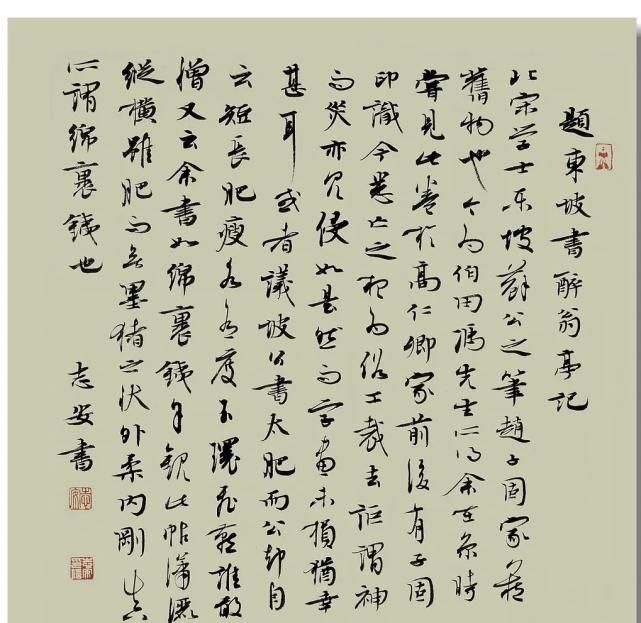 題東坡書醉翁亭記
北宋学士东坡蘇公之筆趙子固家藏
舊物也今为伯田馮先生所得余在京時
嘗見此卷於高仁卿家前後有子固
印識今悉亡之想为俗工裁去詎謂神
而災亦見侵如是然而字畫未損猶幸
甚耳或者議坡公書太肥而公却自
云短長肥瘦各有度玉環飛燕誰敢
憎又云余書如綿裹鐵余觀此帖瀟灑
縱橫雖肥而無墨猪之狀外柔內剛真
所謂綿裹鐵也
志安書